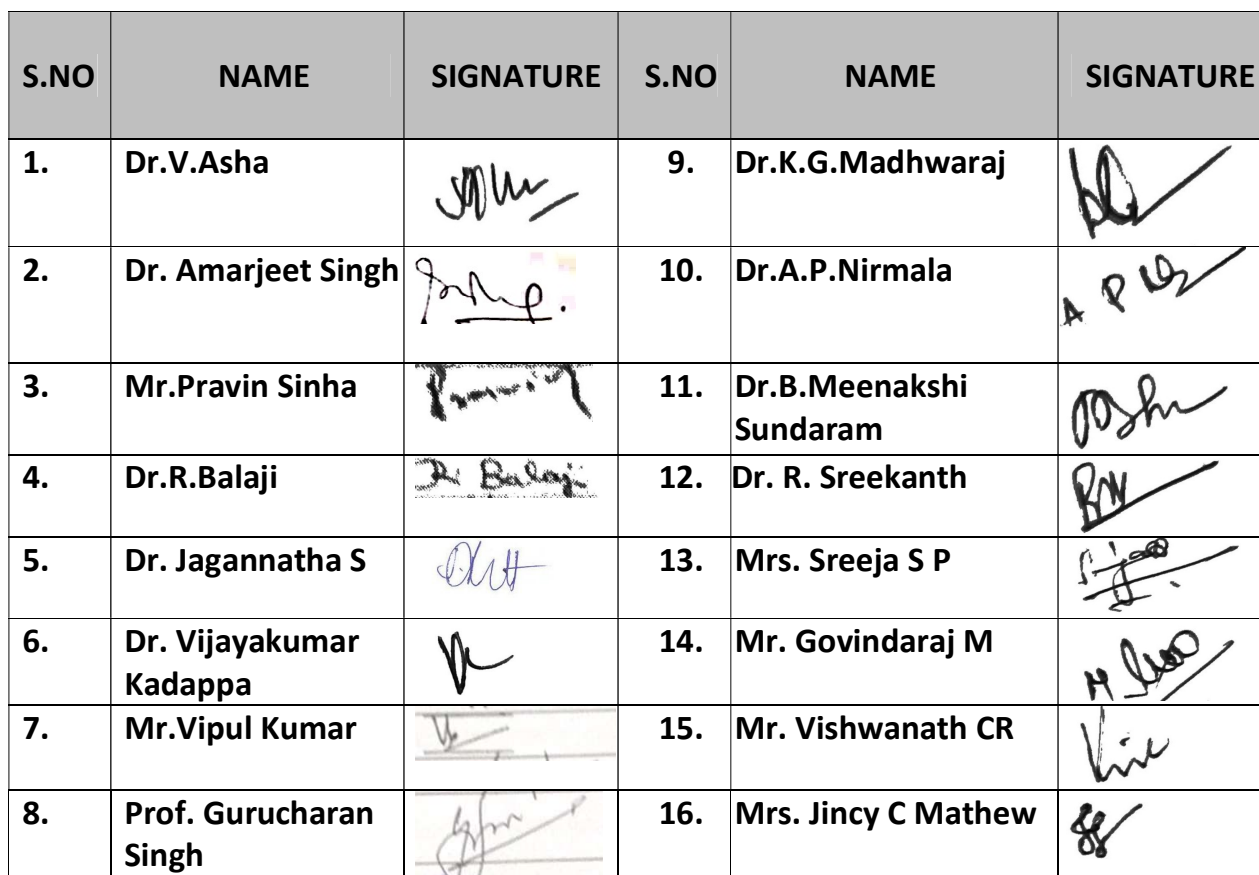 S.NO NAME SIGNATURE S.NO NAME SIGNATURE
1. Dr.V.Asha 9. Dr.K.G.Madhwaraj
2. Dr. Amarjeet Singh 10. Dr.A.P.Nirmala
A P
3. Mr.Pravin Sinha 11. Dr.B.Meenakshi
Sundaram
4. Dr.R.Balaji R. Balaji 12. Dr. R. Sreekanth
5. Dr. Jagannatha S 13. Mrs. Sreeja S P
6. Dr. Vijayakumar 14. Mr. Govindaraj M
Kadappa
7. Mr.Vipul Kumar 15. Mr. Vishwanath CR
8. Prof. Gurucharan 16. Mrs. Jincy C Mathew
Singh